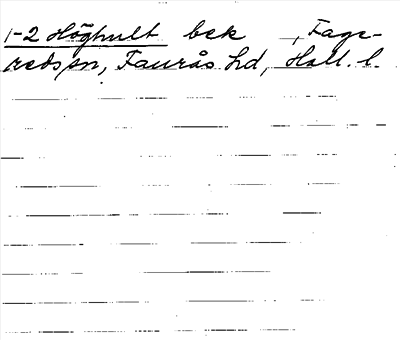 1-2 Höghult bek , Fage-
reds sn, Faurås hd, Hall. l.